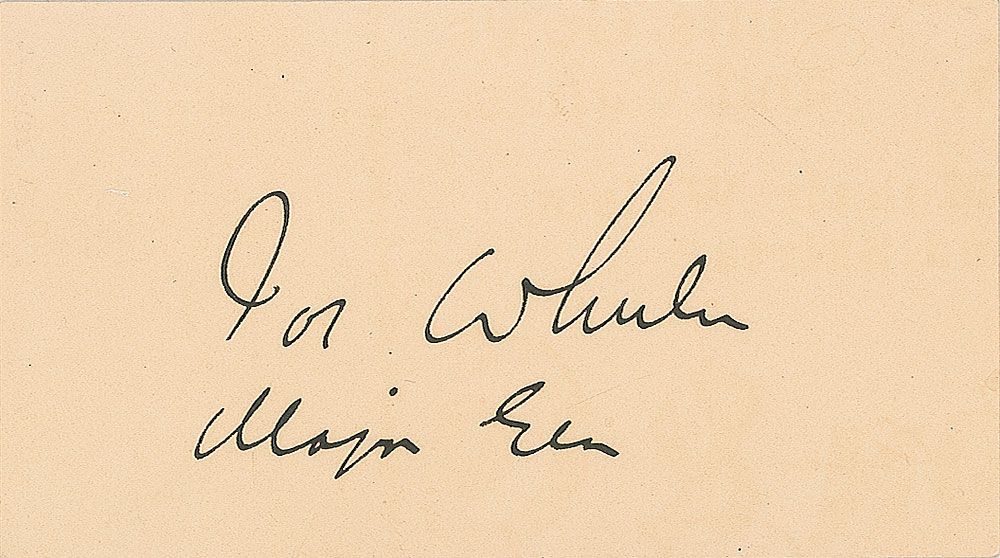 Jos Wheeler
Major Gen